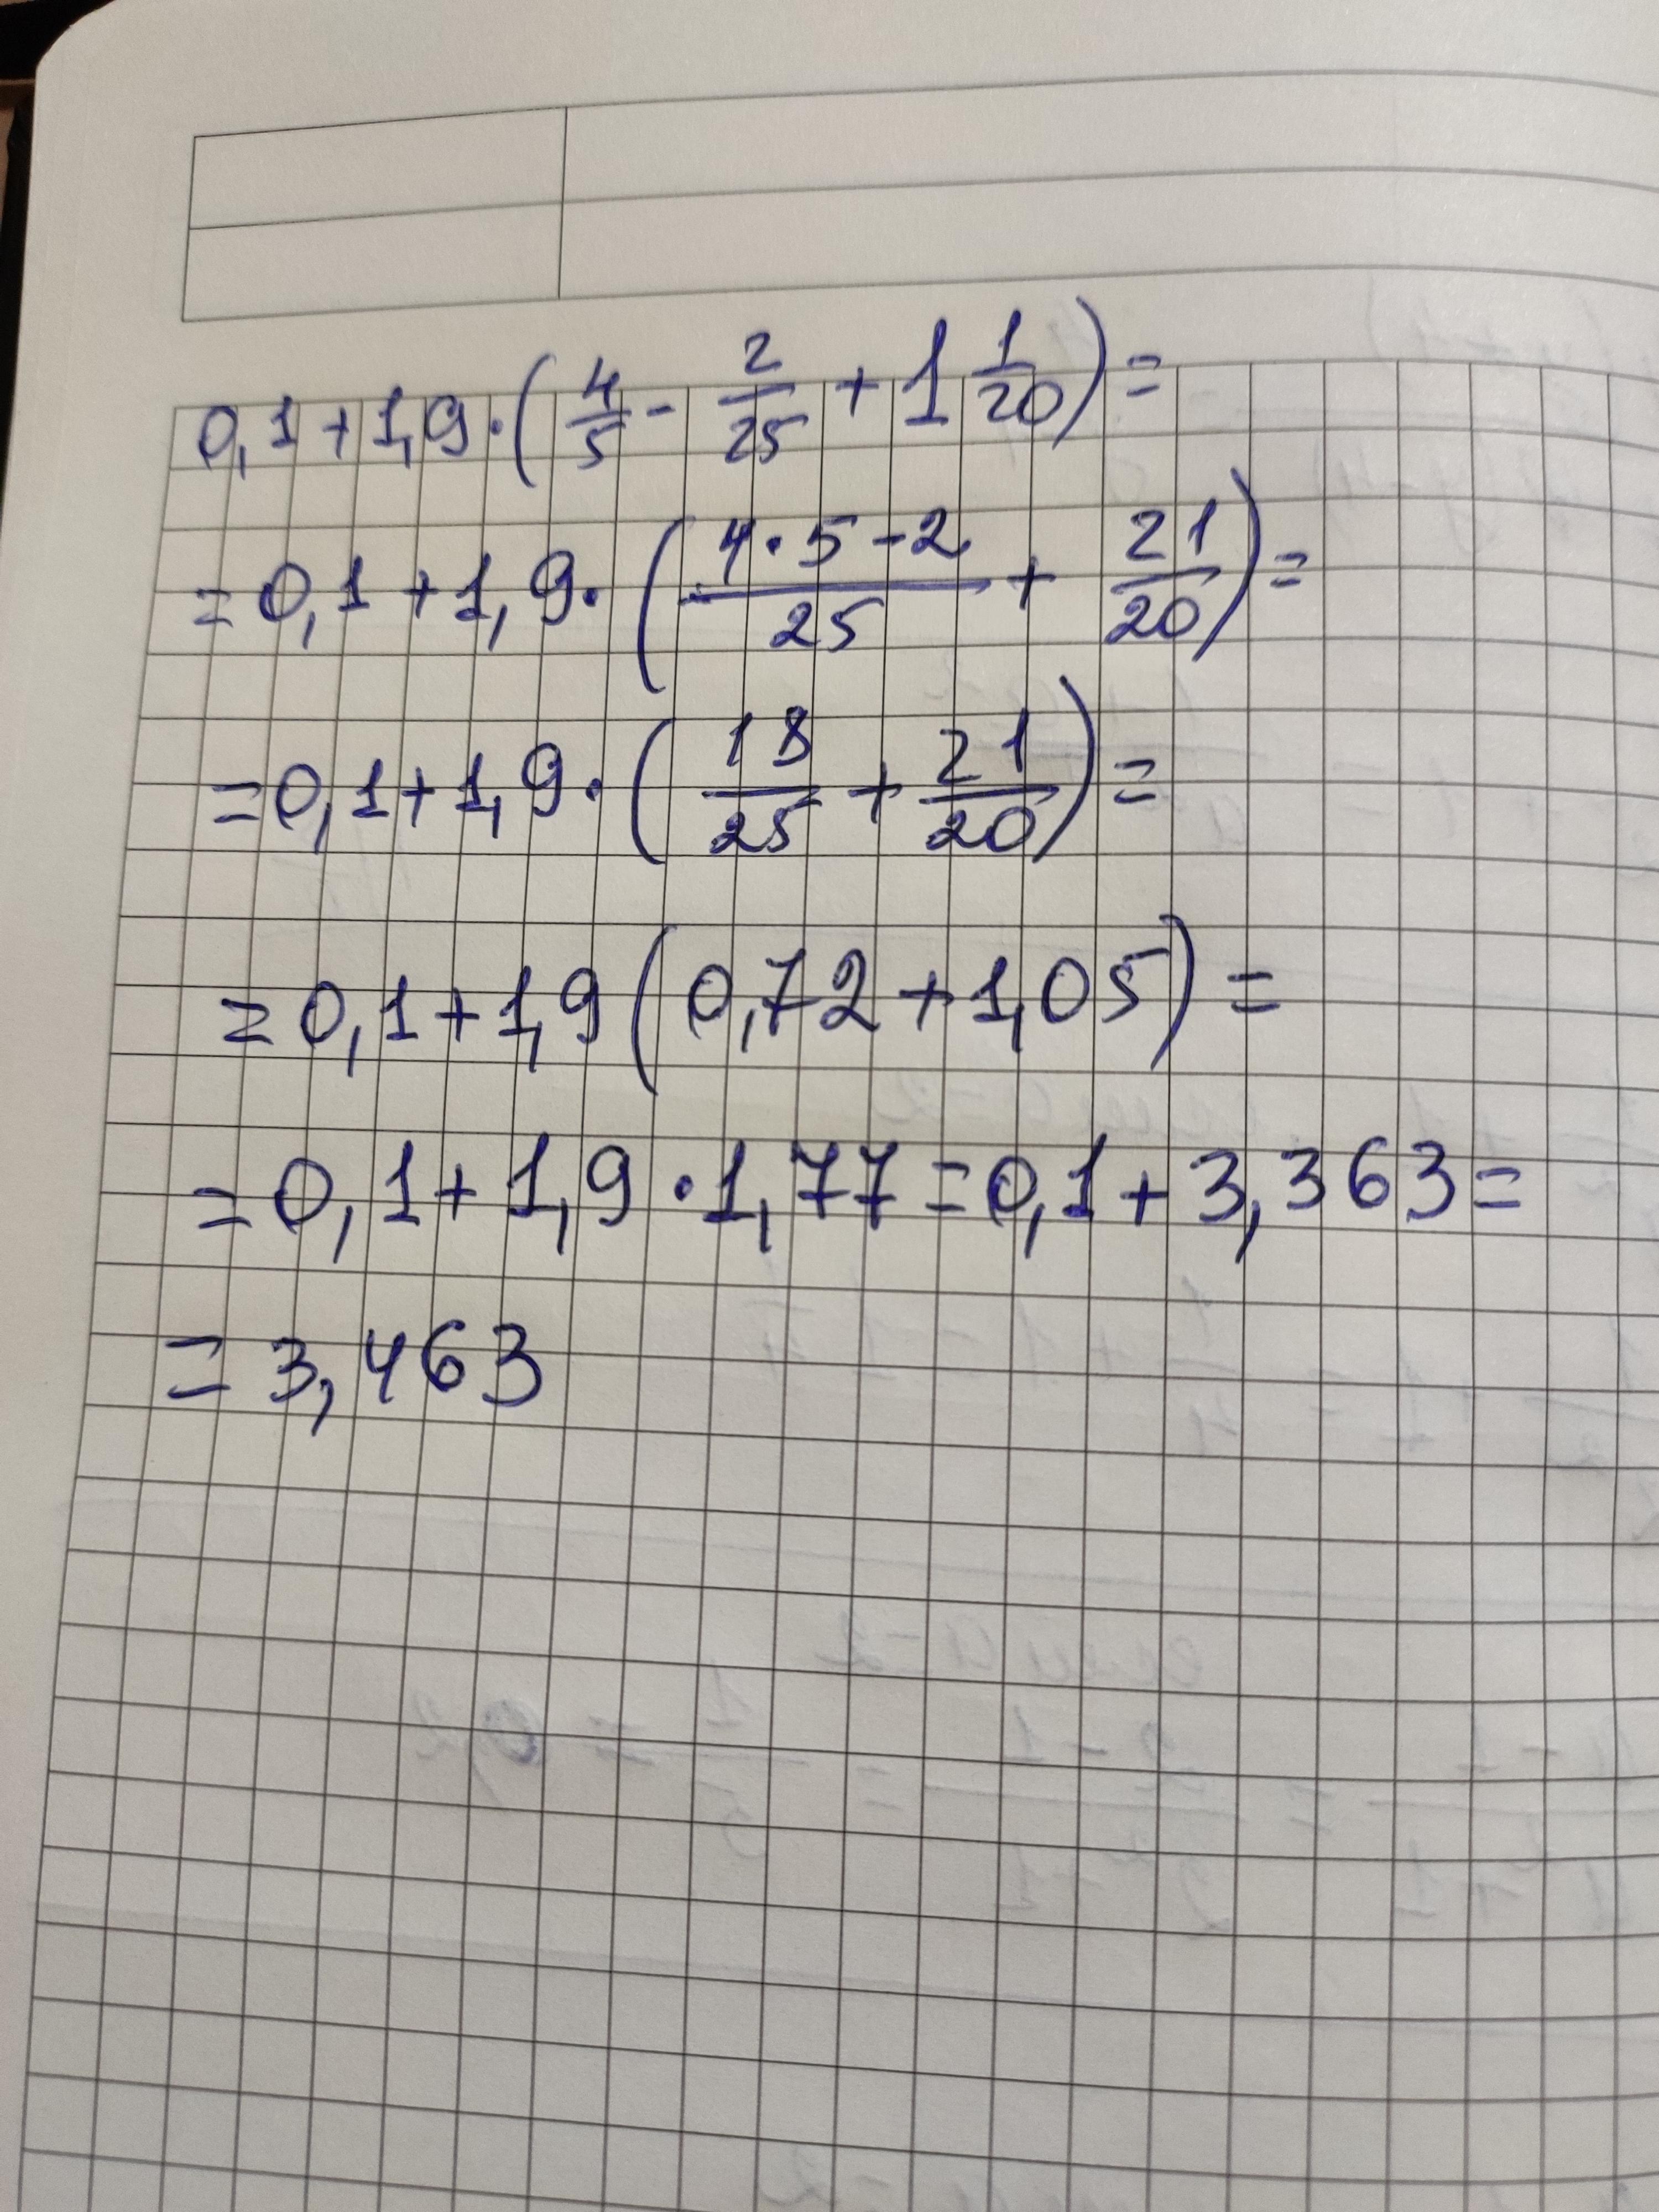 0,1+1,9·(4/5 - 2/25 + 1 1/20)=
=0,1+1,9·(4·5-2/25 + 21/20)=
=0,1+1,9·(18/25 + 21/20)=
=0,1+1,9(0,72+1,05)=
=0,1+1,9·1,77=0,1+3,363=
=3,463